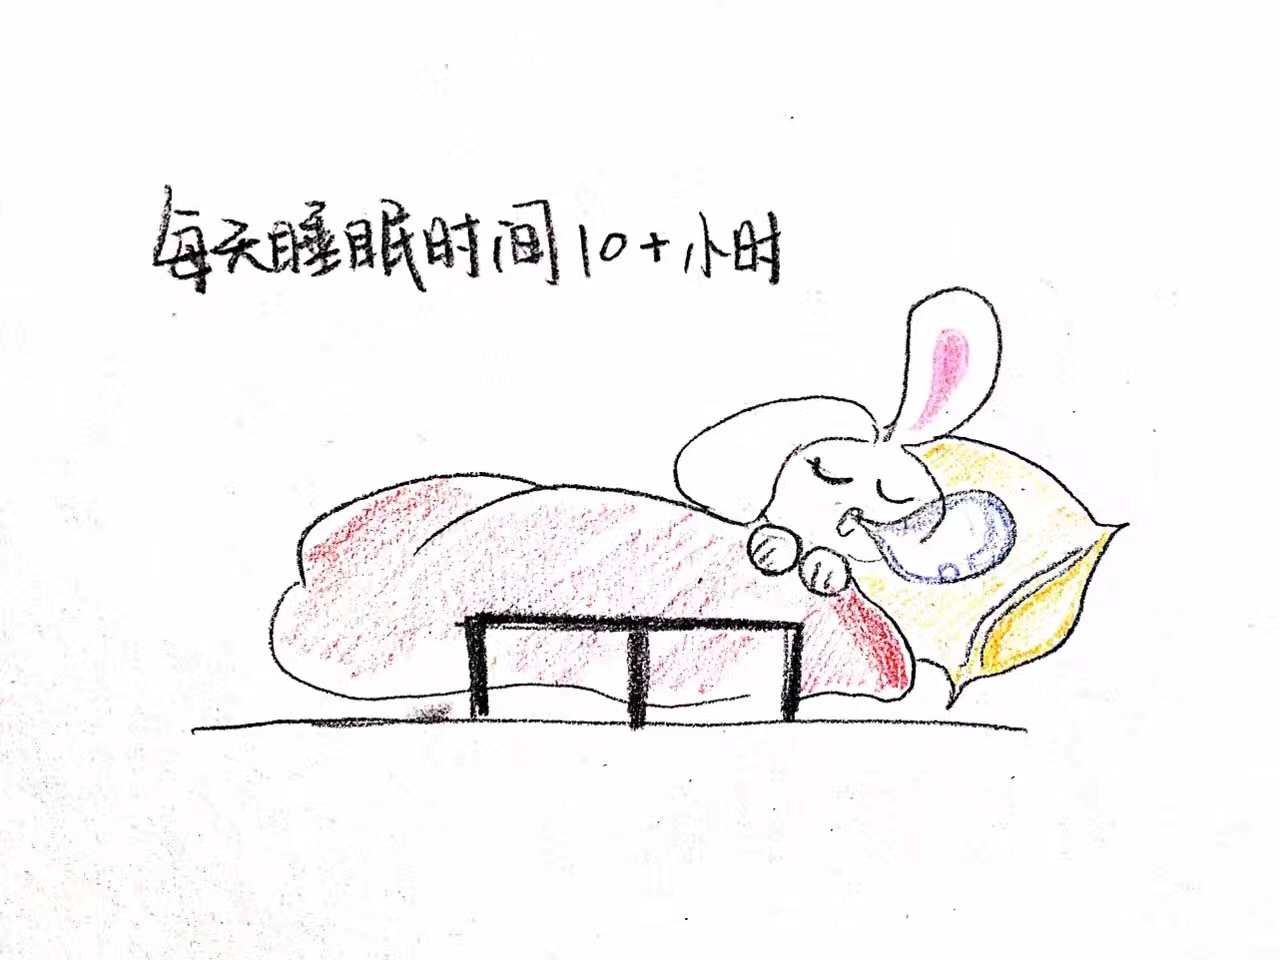 每天睡眠时间10+小时